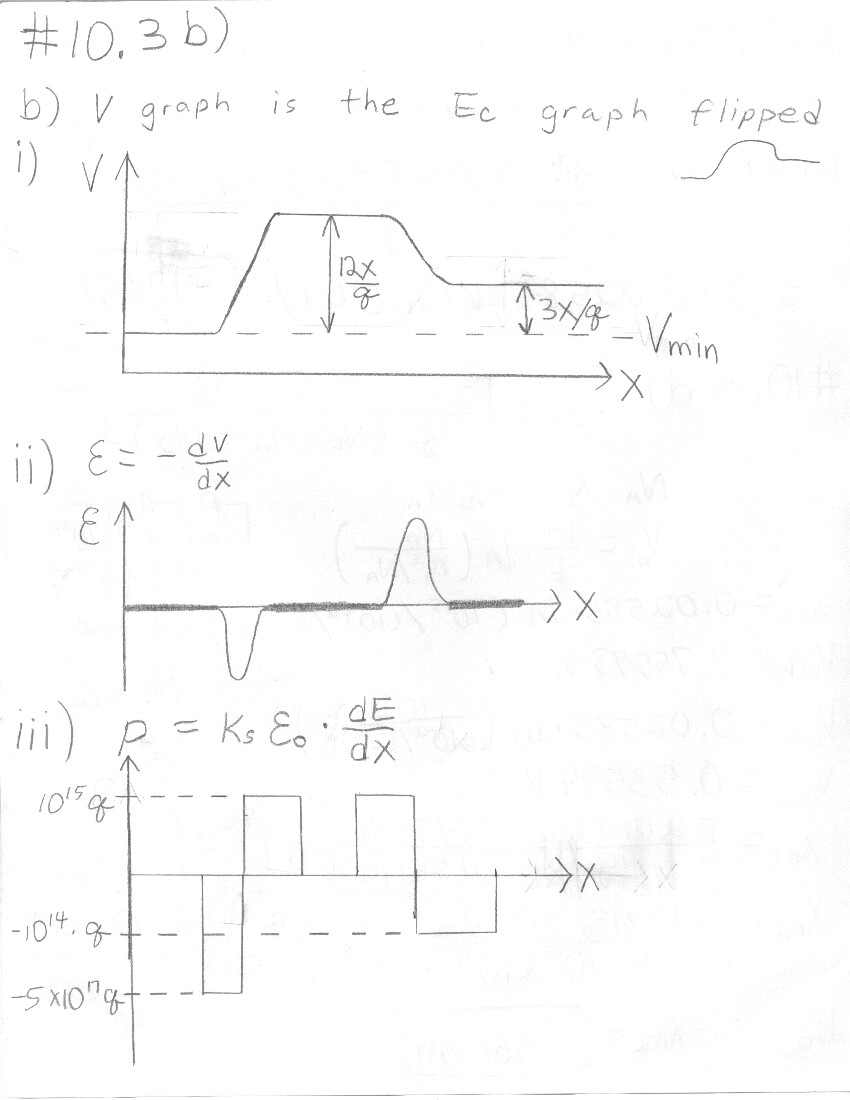 #10.3 b)
b) V graph is the Ec graph flipped
i)
V
12x/q
3x/q
Vmin
X
ii) ε = - dV/dx
ε
X
iii) ρ = Ks ε₀ · dE/dx
10¹⁵q
X
-10¹⁴·q
-5×10¹⁷q